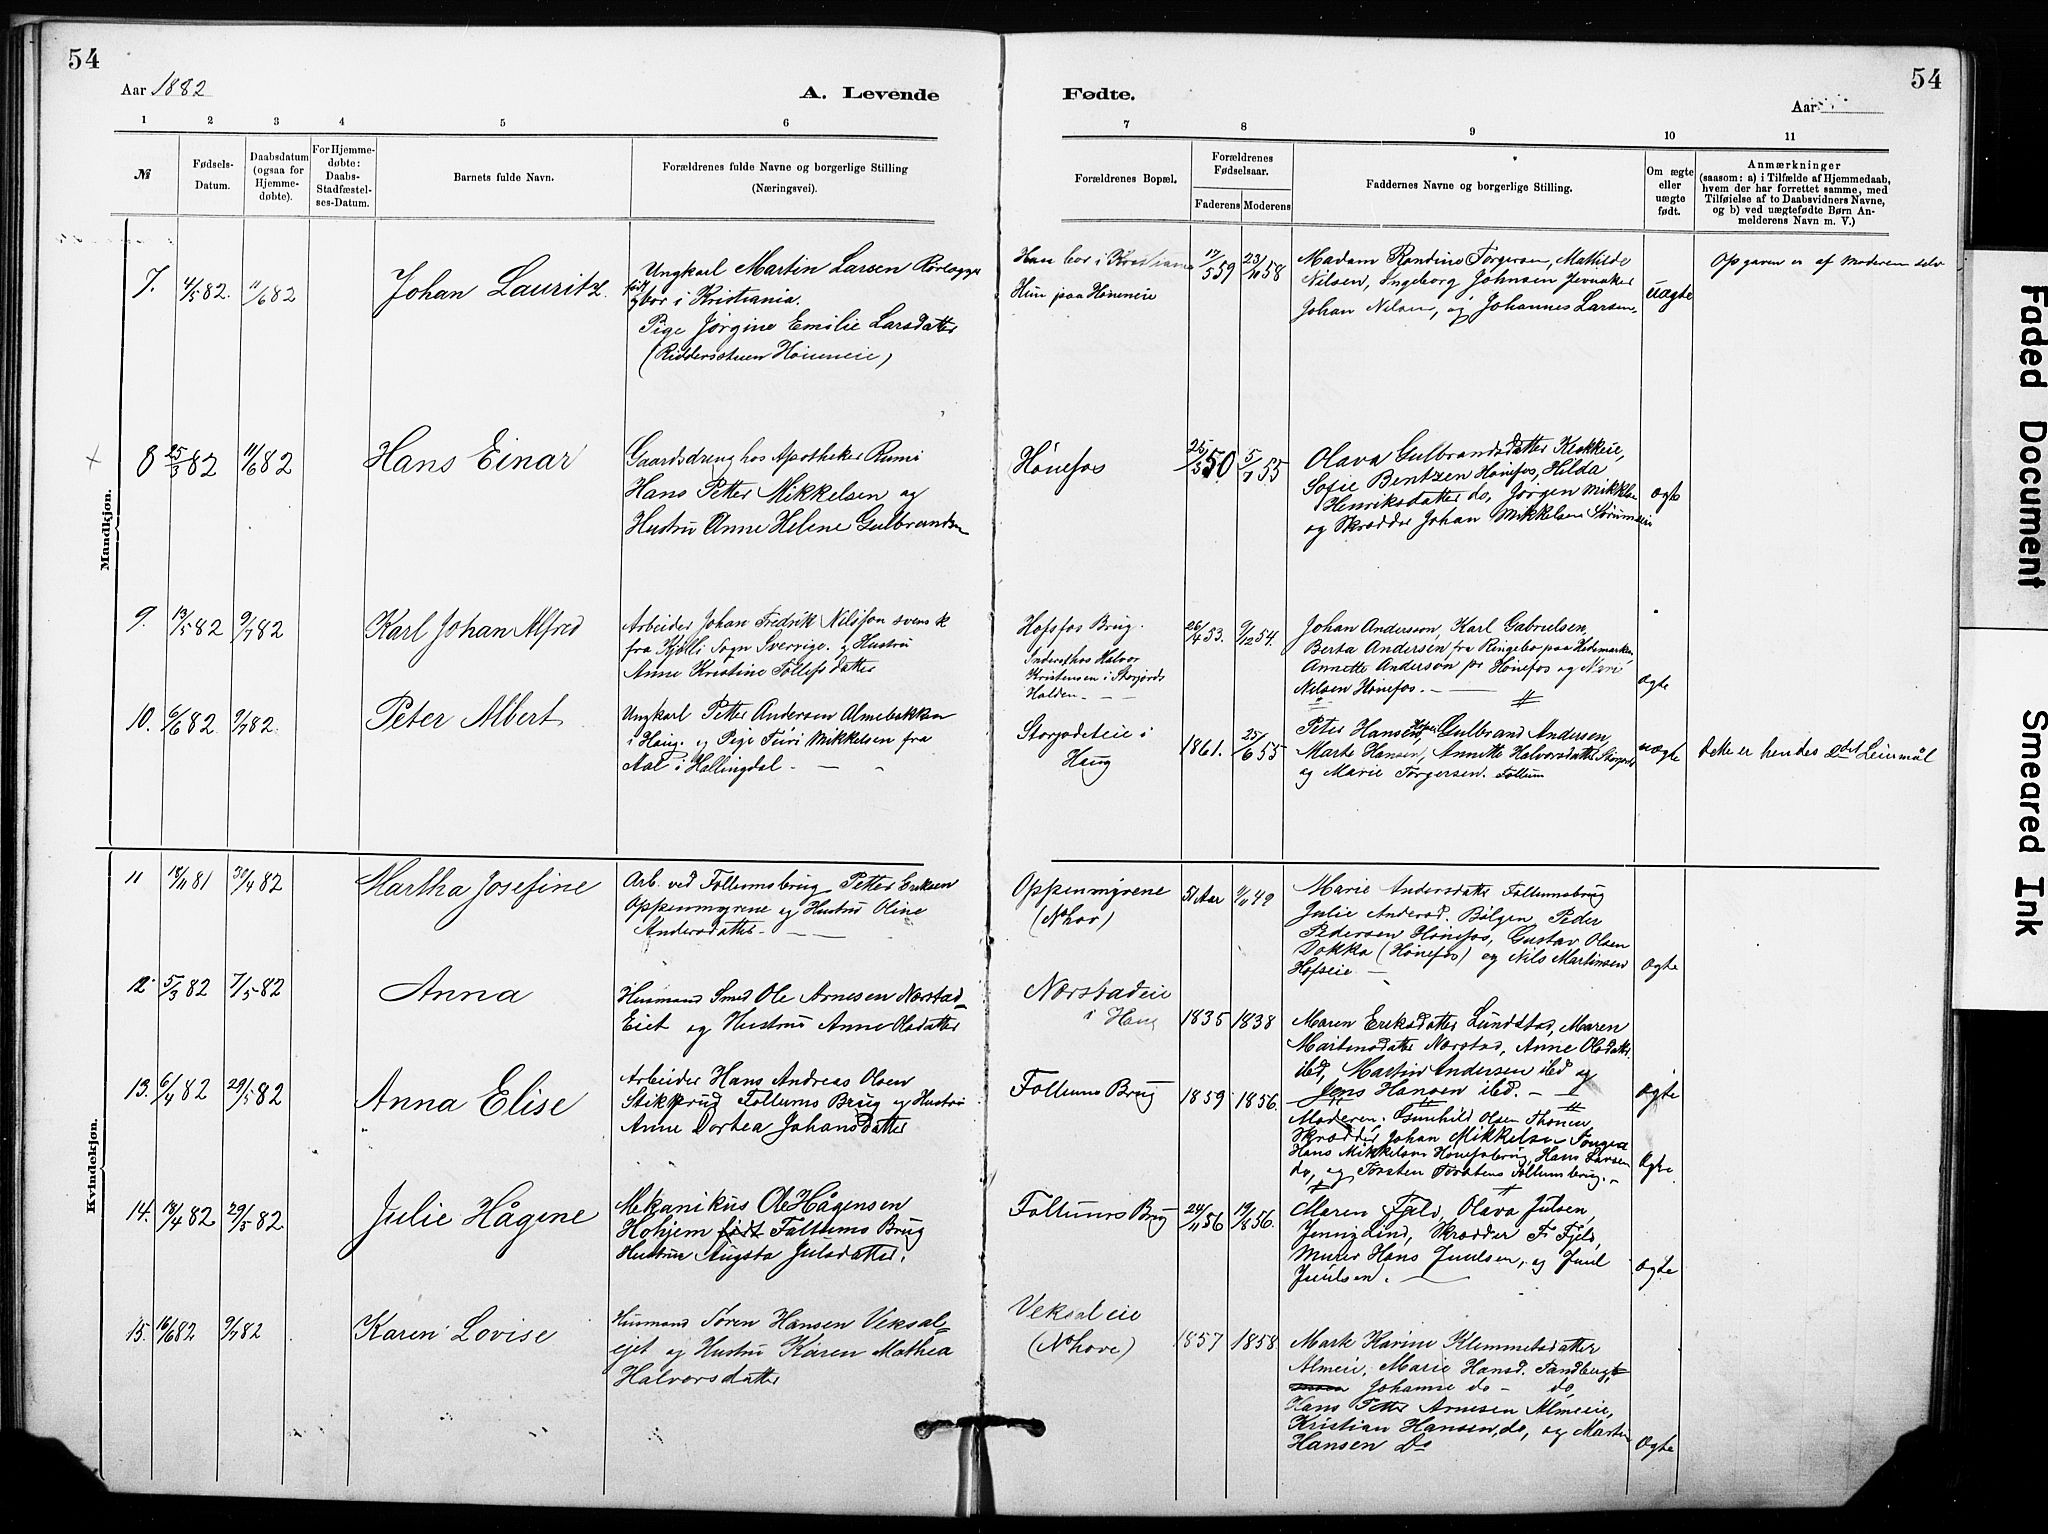 54
54
Aar 1882
A. Levende
Fødte.
Aar
1 2 3 4 5 6 7 8 9 10 11
№
Fødsels-
Datum.
Daabsdatum
(ogsaa for
Hjemme-
døbte).
For Hjemme-
døbte:
Daabs-
Stadfæstel-
ses-Datum.
Barnets fulde Navn.
Forældrenes fulde Navne og borgerlige Stilling
(Næringsvei).
Forældrenes Bopæl.
Forældrenes
Fødselsaar.
Faderens Moderens
Faddernes Navne og borgerlige Stilling.
Om ægte
eller
uægte
født.
Anmærkninger
(saasom: a) i Tilfælde af Hjemmedaab,
hvem der har forrettet samme, med
Tilføielse af to Daabsvidners Navne,
og b) ved uægtefødte Børn An-
melderens Navn m. V.)
Mandkjøn.
7. 4/5 82. 11/6 82
Johan Lauritz
Ungkarl Martin Larsen Rørlægger
bor i Kristiania.
Pige Jørgine Emilie Larsdatter
(Riddersstuen Høneneie)
Han bor i Kristiania
Hun paa Høneneie
17/5 59 23/10 58
Madam Randine Torgersen, Mathilde
Nilsen, Ingeborg Johnsen Jevnaker
Johan Nilsen, og Johannes Larsen
uægte
Opgaven er af Moderen selv
8 25/3 82 11/6 82
Hans Einar
Gaardsdreng hos Apotheker
Hans Petter Mikkelsen og
Hustru Anne Helene Gulbrandsen
Hønefos
25/5 50 5/7 55
Olava Gulbrandsdatter
Sofie Bentzen Hønefos, Hilda
Henriksdatter do, Jørgen Mikkelsen
og Skrædder Johan Mikkelsen
ægte
9. 13/5 82 9/7 82
Karl Johan Alfred
Arbeider Johan Fredrik Nilsson svensk
fra Sogn Sverrige. og Hustru
Anne Kristine Tollefsdatter
Hofsfos Brug.
Inderst hos Halvor
Kristensen i Storjords
Halden.
26/4 53. 9/12 54.
Johan Andersson, Karl Gabrielsen,
Berta Andersen fra Ringebo paa Hedemarken
Annette Anderson pr Hønefos og
Nilsen Hønefos.
ægte
10. 6/6 82 9/7 82.
Peter Albert
Ungkarl Petter Andersen Almebakken
i Haug. og Pige Turi Mikkelsen fra
Aal i Hallingdal.
i
Haug
1861. 25/6 55
Peter Hansen, Gulbrand Andersen,
Marte Hansen, Annette Halvorsdatter
og Marie Torgersen. Follum
uægte
Dette er hendes 2det Leiermål
Kvindekjøn.
11 18/11 81 30/4 82
Martha Josefine
Arb. ved Follumsbrug Petter Eriksen
Oppenmyrene og Hustru Oline
Andersdatter
Oppenmyrene
(N.hov)
51 Aar 11/11 49
Marie Andersdatter Follumsbrug
Julie Andersd. Bølgen, Peder
Pedersen Hønefos, Gustav Olsen
Dokka (Hønefos) og Nils Martinsen
Hofseie
ægte
12. 5/3 82 7/5 82
Anna
Husmand Smed Ole Arnesen Nærstad-
Eiet og Hustru Anne Olsdatter
Nærstadeie
i Haug
1835 1838
Maren Eriksdatter Lundstad, Maren
Martensdatter Nærstad, Anne Olsdatter
ibd, Martin Andersen ibd og
Jens Hansen ibd.
ægte
13. 6/4 82 29/5 82
Anna Elise
Arbeider Hans Andreas Olsen
Stikkrud Follums Brug og Hustru
Anne Dortea Johansdatter
Follums Brug
1859 1856.
Moderen. Gunhild Olsen Thonen
Skrædder Johan Mikkelsen
Hans Mikkelsen Hønefosbrug, Hans Larsen
do, og Torsten Torstens Follumsbrug.
ægte
14. 18/4 82 29/5 82
Julie Hågine
Mekanikus Ole Hågensen
Hohjem Follums Brug
Hustru Augsta Julsdatter.
Follums Brug
24/11 56 19/8 56.
Maren Fjeld, Olava Julsen,
Jenny Lind, Skrædder F. Fjeld,
Murer Hans Juulsen, og Juul
Juulsen.
ægte
15. 16/6 82 9/7 82
Karen Lovise
Husmand Søren Hansen Veksal-
ejet og Hustru Karen Mathea
Halvorsdatter
Veksaleie
(N.hove)
1857 1858
Marte Karine Klemmetsdatter
Almeie, Marie Hansd. Tandberg,
Johanne do do,
Hans Petter Arnesen Almeie,
Kristian Hansen, do, og Martin
Hansen Do
ægte
Faded Document
Smeared Ink